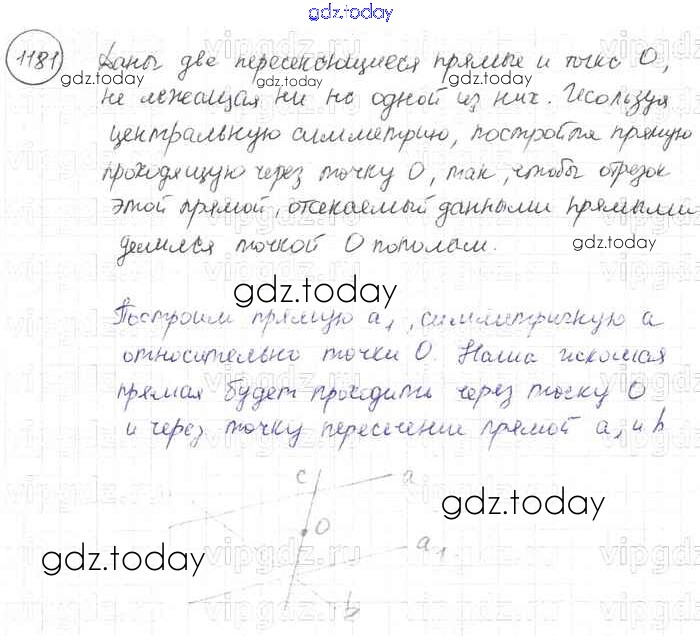 gdz.today
1181 Даны две пересекающиеся прямые и точка О,
gdz.today gdz.today
не лежащая ни на одной из них. Используя
центральную симметрию, постройте прямую
проходящую через точку О, так, чтобы отрезок
этой прямой, отсекаемый данными прямыми
делился точкой О пополам.
gdz.today
gdz.today
Построим прямую a₁, симметричную a
относительно точки О. Наша искомая
прямая будет проходить через точку О
и через точку пересечении прямой a₁ и b
c a
gdz.today
O
gdz.today
a₁
b
vipgdz.ru